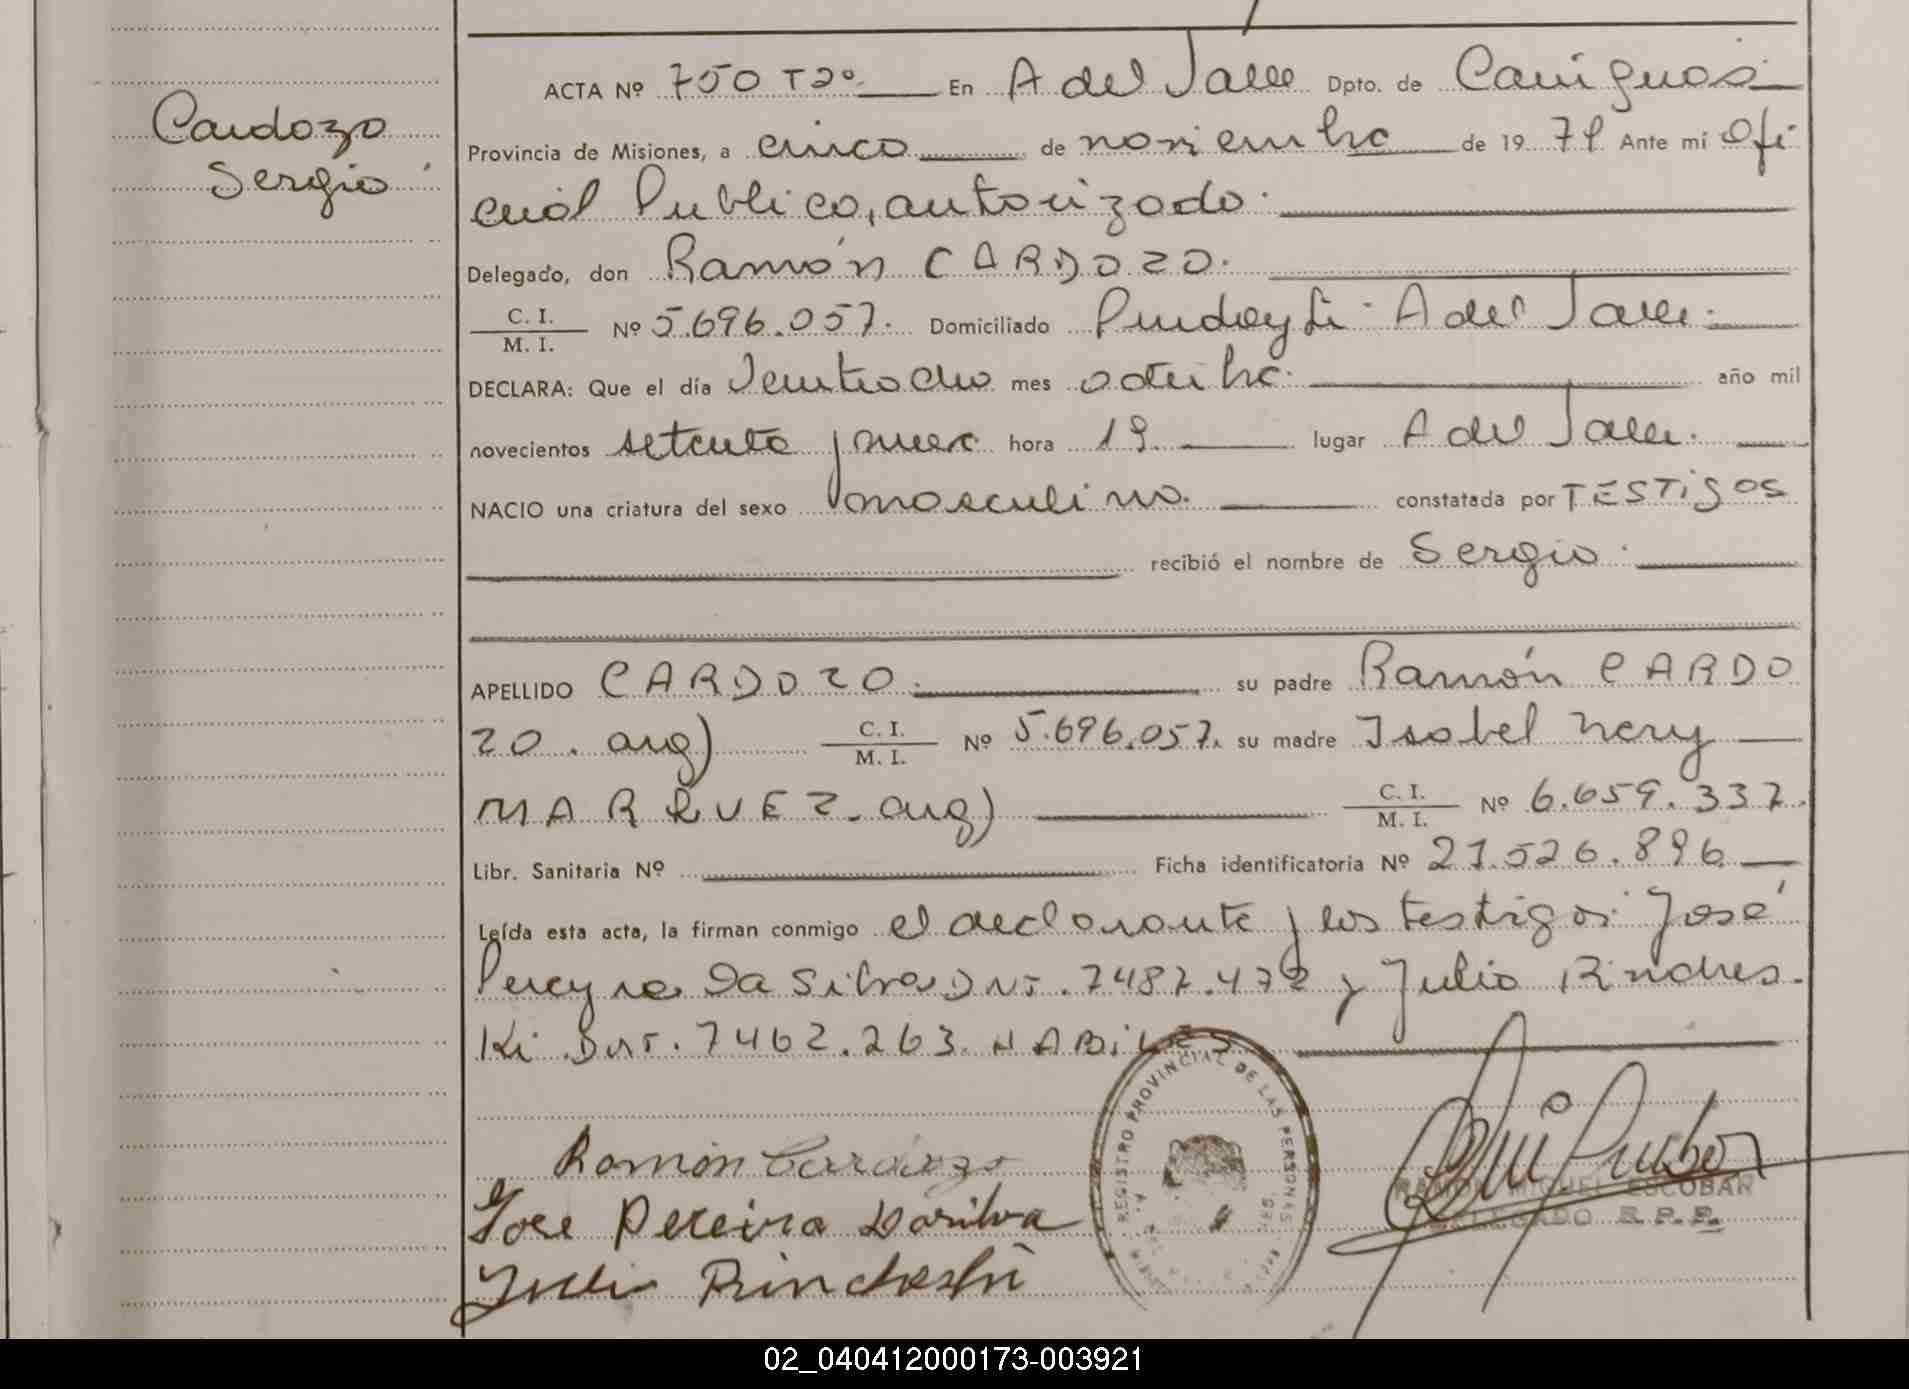 Cardozo
Sergio
ACTA Nº 750 T2º En A del Valle Dpto. de Cainguás
Provincia de Misiones, a cinco de noviembre de 1979 Ante mí Ofi
cial Publico, autorizado.
Delegado, don Ramón CARDOZO.
C. I. / M. I. Nº 5.696.057. Domiciliado A del Valle.
DECLARA: Que el día Veintiocho mes octubre. año mil
novecientos setenta y nueve hora 19. lugar A del Valle.
NACIO una criatura del sexo masculino. constatada por TESTiGOS
recibió el nombre de Sergio.
APELLIDO CARDOZO. su padre Ramón CARDO
ZO. arg) C. I. / M. I. Nº 5.696.057. su madre Isabel Nery
MARQUEZ. arg) C. I. / M. I. Nº 6.659.337.
Libr. Sanitaria Nº Ficha identificatoria Nº 27.526.896
Leída esta acta, la firman conmigo el declarante y los testigos José
Pereyra Da Silva DNI. 7487.472 y Julio Rindches.
Ki DNI. 7462.263. HABiLES
REGISTRO PROVINCIAL DE LAS PERSONAS
Ramón Cardozo
Jose Pereira Dasilva
RAMON MIGUEL ESCOBAR
DELEGADO R.P.P.
Julio Rincheski
02_040412000173-003921